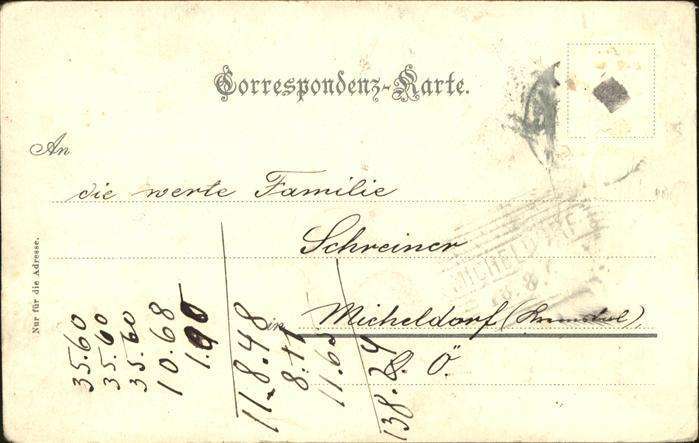 Correspondenz-Karte.
An
die werte Familie
Schreiner
MICHELDORF
8
in Micheldorf (Kremstal),
O. Ö.
Nur für die Adresse.
35.60
35.60
35.60
10.68
11.8.48
8.11
138.24